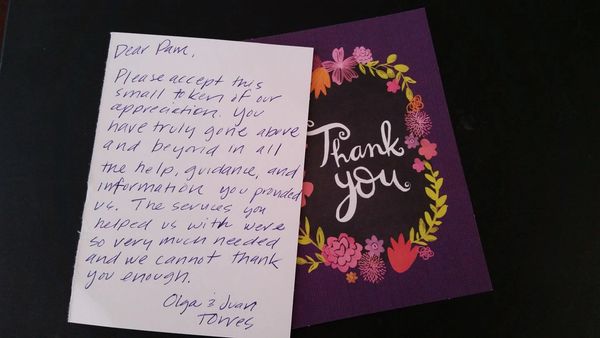 Dear Pam,
Please accept this
small token of our
appreciation. You
have truly gone above
and beyond in all
the help, guidance, and
information you provided
us. The services you
helped us with were
so very much needed
and we cannot thank
you enough.
Olga & Juan
Torres
Thank
you